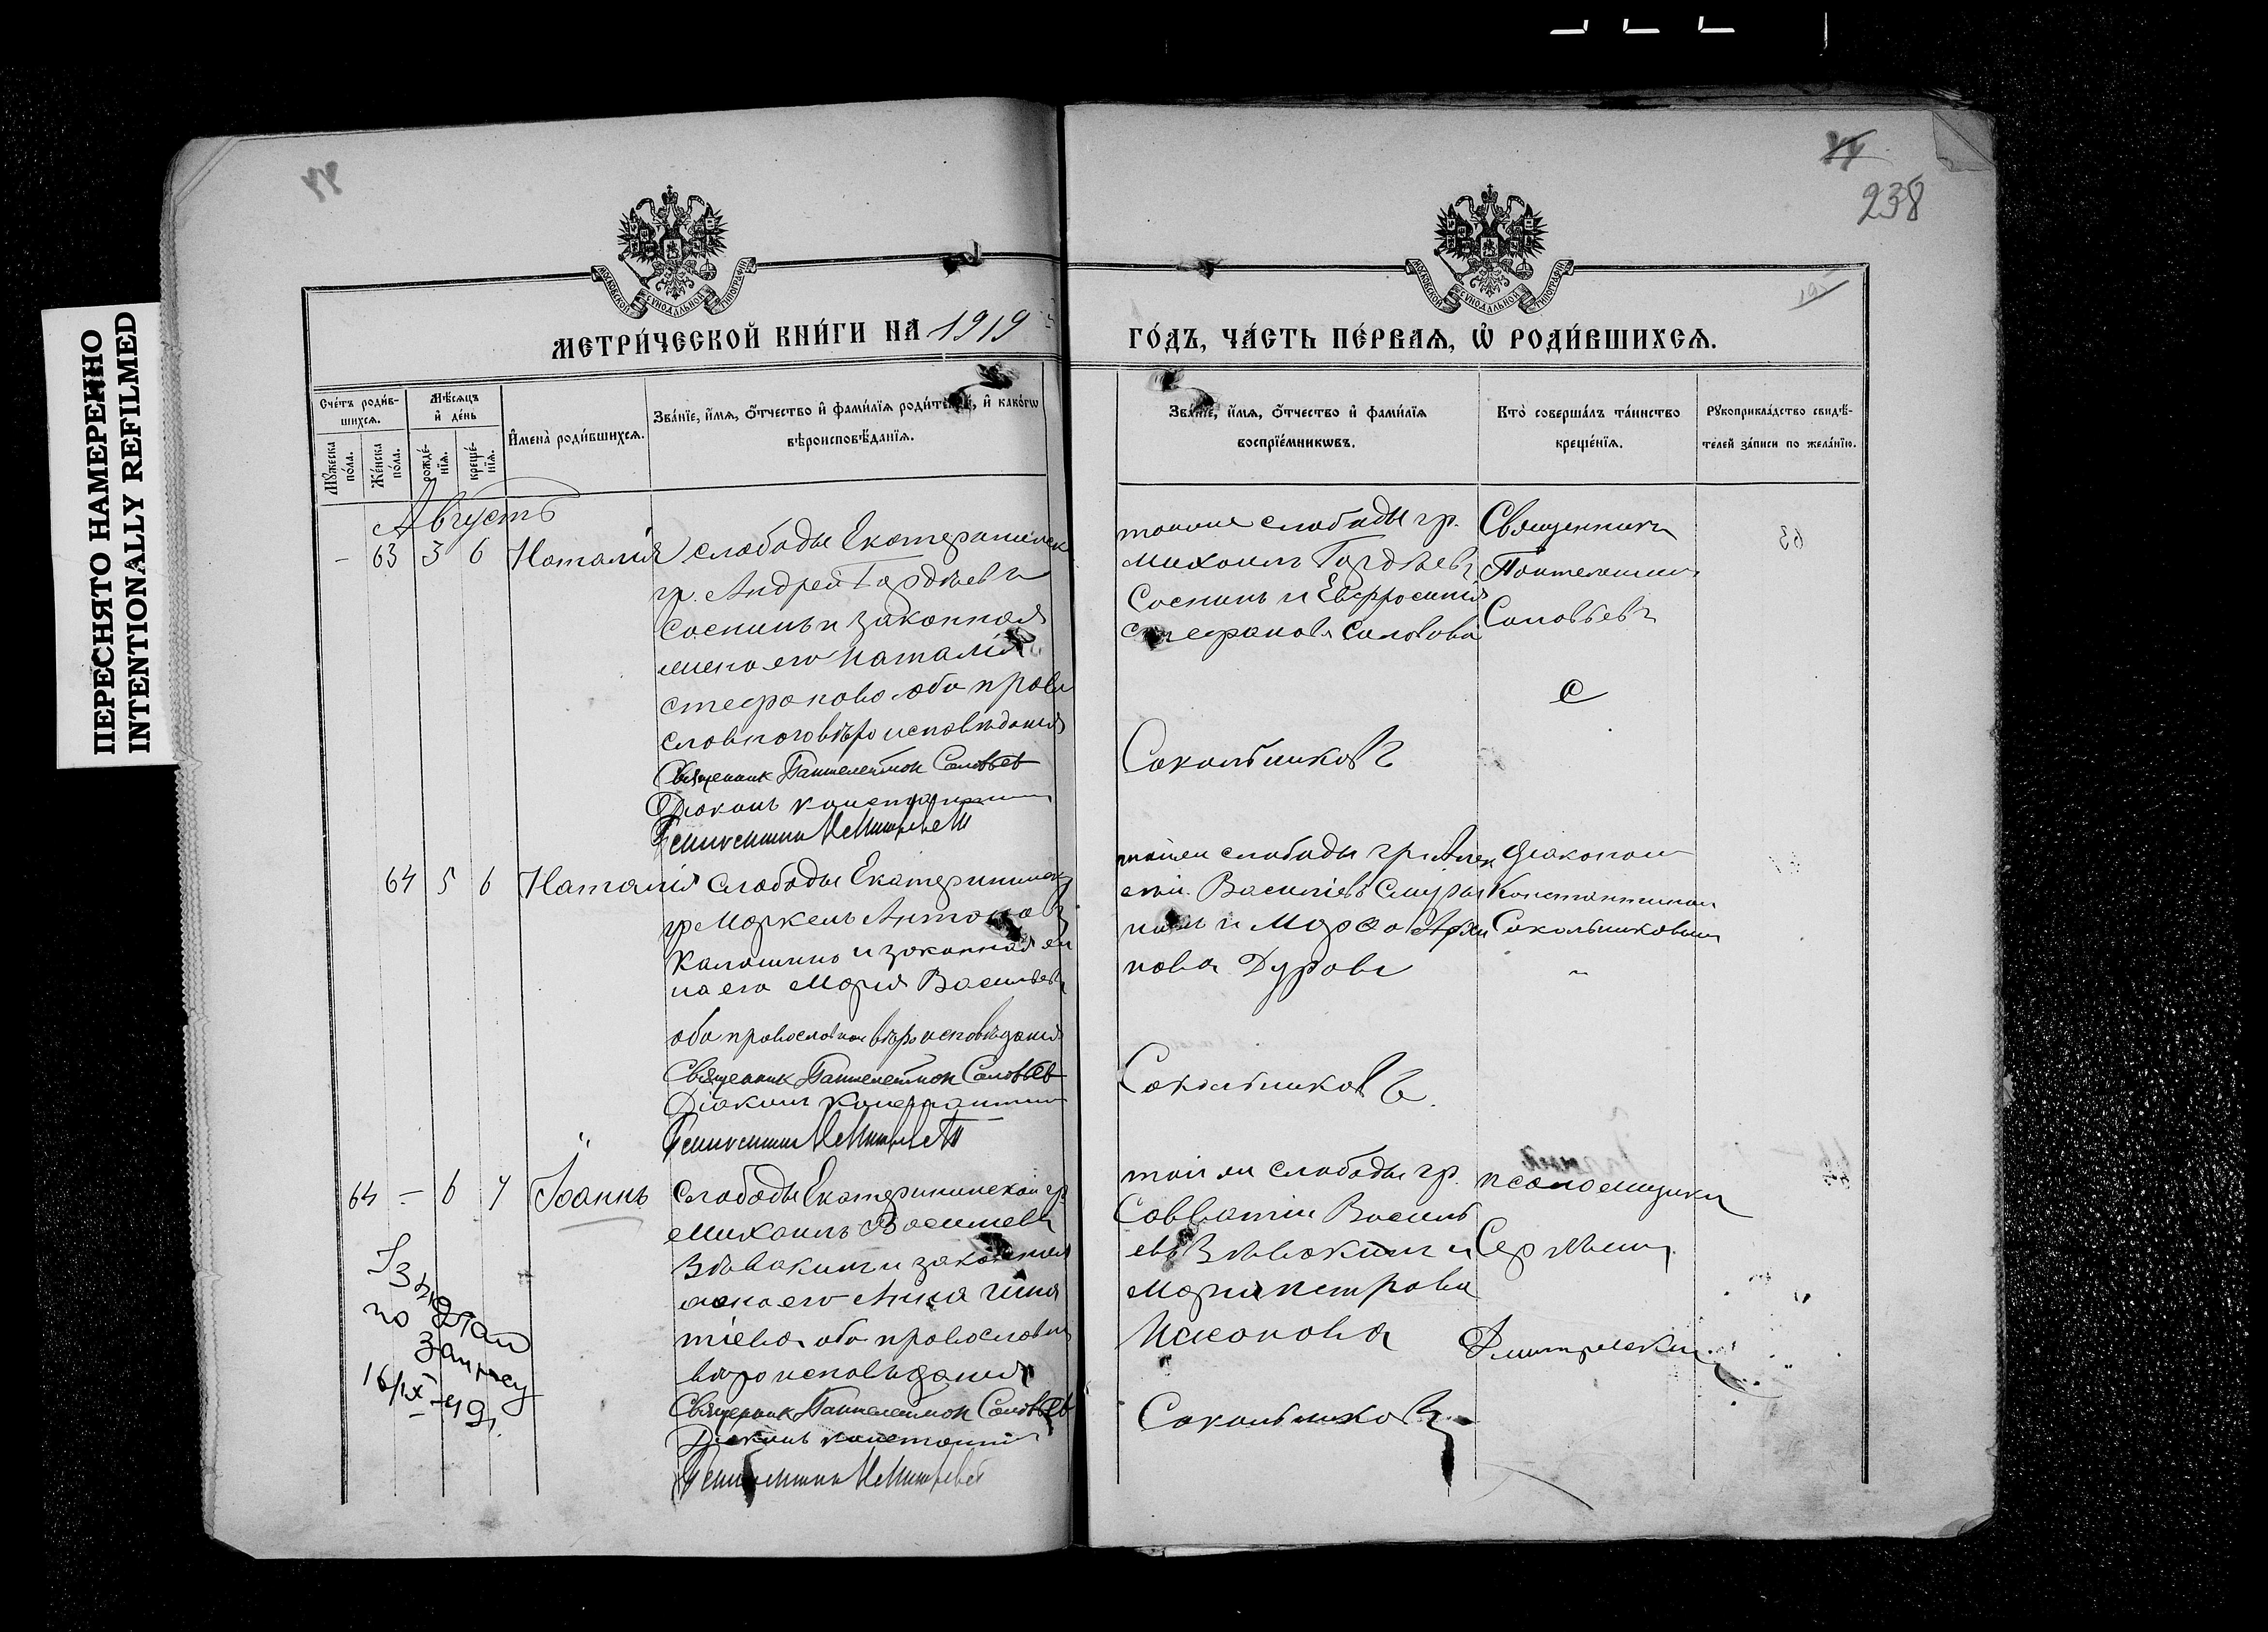 ПЕРЕСНЯТО НАМЕРЕННО
INTENTIONALLY REFILMED
238
МОСКОВСКОЙ СѴНОДАЛЬНОЙ ТИПОГРАФІИ
МОСКОВСКОЙ СѴНОДАЛЬНОЙ ТИПОГРАФІИ
МЕТРИ́ЧЕСКОЙ КНИ́ГИ НА 1919
ГО́ДЪ, ЧА́СТЬ ПЕ́РВАѦ, Ѡ҆ РОДИ́ВШИХСѦ.
Сче́тъ роди́в-
шихсѧ.
Мꙋ́жеска
по́ла.
Же́нска
по́ла.
Мѣ́сѧцъ
и҆ де́нь
рожде́-
нїѧ.
креще́-
нїѧ.
И҆мена̀ роди́вшихсѧ.
Зва́нїе, и҆́мѧ, ѻ҆́тчество и҆ фами́лїѧ роди́телей, и҆ како́гѡ
вѣроисповѣ́данїѧ.
Зва́нїе, и҆́мѧ, ѻ҆́тчество и҆ фами́лїѧ
воспрїе́мникѡвъ.
Кто̀ соверша́лъ та́инство
креще́нїѧ.
Рꙋкоприкла́дство свидѣ́-
телей за́писи по жела́нїю.
Августъ
- 63 3 6 Наталія слободы Екатерининск
гр. Андрей Гордѣевъ
Соснинъ и законная
жена его Наталія
Стефанова оба право
славнаго вѣроисповѣданія
Священник Пантелеймон Соловьев
Діаконъ Константин
Псаломщик
тоиже слободы гр.
Михаилъ Гордѣевъ
Соснинъ и Евфросинія
Стефанова
Сокольниковъ
Священникъ
Пантелеимонъ
Соловьевъ
64 5 6 Наталія слободы Екатерининск
гр Маркелъ Антоновъ
Калашинъ и законная же
на его Марія Васильева
оба православнаго вѣроисповѣданія
Священник Пантелеймон Соловьев
Діаконъ Константин
Псаломщик
тойже слободы гр. Алек
сѣй Васильевъ
и Марѳа Архи
пова Дурова
Сокольниковъ
Діаконъ
Константинъ
Сокольниковъ
64 - 6 7 Іоаннъ слободы Екатерининской гр.
Михаилъ Васильевъ
Зѣвакинъ и законная
жена его Анна Игна
тіева оба православна
вѣроисповѣданія
Священник Пантелеймон Соловьев
Діаконъ Константинъ
Псаломщик
той же слободы гр.
Савватій Василь
евъ Зѣвакинъ и
Марія Петрова
Сокольниковъ
псаломщикъ
Сергѣй
по
Запросу
16/IX-49.